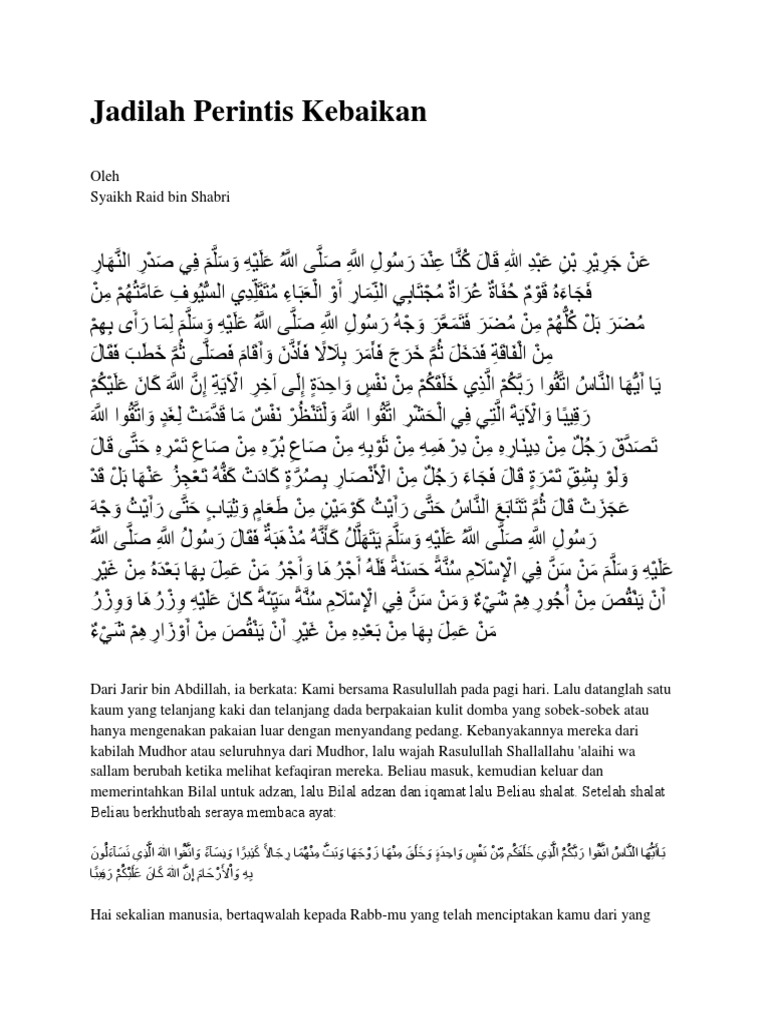 Jadilah Perintis Kebaikan
Oleh
Syaikh Raid bin Shabri
عَنْ جَرِيْرِ بْنِ عَبْدِ اللهِ قَالَ كُنَّا عِنْدَ رَسُولِ اللَّهِ صَلَّى اللَّهُ عَلَيْهِ وَسَلَّمَ فِي صَدْرِ النَّهَارِ
فَجَاءَهُ قَوْمٌ حُفَاةٌ عُرَاةٌ مُجْتَابِي النِّمَارِ أَوْ الْعَبَاءِ مُتَقَلِّدِي السُّيُوفِ عَامَّتُهُمْ مِنْ
مُضَرَ بَلْ كُلُّهُمْ مِنْ مُضَرَ فَتَمَعَّرَ وَجْهُ رَسُولِ اللَّهِ صَلَّى اللَّهُ عَلَيْهِ وَسَلَّمَ لِمَا رَأَى بِهِمْ
مِنْ الْفَاقَةِ فَدَخَلَ ثُمَّ خَرَجَ فَأَمَرَ بِلَالًا فَأَذَّنَ وَأَقَامَ فَصَلَّى ثُمَّ خَطَبَ فَقَالَ
يَا أَيُّهَا النَّاسُ اتَّقُوا رَبَّكُمْ الَّذِي خَلَقَكُمْ مِنْ نَفْسٍ وَاحِدَةٍ إِلَى آخِرِ الْآيَةِ إِنَّ اللَّهَ كَانَ عَلَيْكُمْ
رَقِيبًا وَالْآيَةَ الَّتِي فِي الْحَشْرِ اتَّقُوا اللَّهَ وَلْتَنْظُرْ نَفْسٌ مَا قَدَّمَتْ لِغَدٍ وَاتَّقُوا اللَّهَ
تَصَدَّقَ رَجُلٌ مِنْ دِينَارِهِ مِنْ دِرْهَمِهِ مِنْ ثَوْبِهِ مِنْ صَاعِ بُرِّهِ مِنْ صَاعِ تَمْرِهِ حَتَّى قَالَ
وَلَوْ بِشِقِّ تَمْرَةٍ قَالَ فَجَاءَ رَجُلٌ مِنْ الْأَنْصَارِ بِصُرَّةٍ كَادَتْ كَفُّهُ تَعْجِزُ عَنْهَا بَلْ قَدْ
عَجَزَتْ قَالَ ثُمَّ تَتَابَعَ النَّاسُ حَتَّى رَأَيْتُ كَوْمَيْنِ مِنْ طَعَامٍ وَثِيَابٍ حَتَّى رَأَيْتُ وَجْهَ
رَسُولِ اللَّهِ صَلَّى اللَّهُ عَلَيْهِ وَسَلَّمَ يَتَهَلَّلُ كَأَنَّهُ مُذْهَبَةٌ فَقَالَ رَسُولُ اللَّهِ صَلَّى اللَّهُ
عَلَيْهِ وَسَلَّمَ مَنْ سَنَّ فِي الْإِسْلَامِ سُنَّةً حَسَنَةً فَلَهُ أَجْرُهَا وَأَجْرُ مَنْ عَمِلَ بِهَا بَعْدَهُ مِنْ غَيْرِ
أَنْ يَنْقُصَ مِنْ أُجُورِهِمْ شَيْءٌ وَمَنْ سَنَّ فِي الْإِسْلَامِ سُنَّةً سَيِّئَةً كَانَ عَلَيْهِ وِزْرُهَا وَوِزْرُ
مَنْ عَمِلَ بِهَا مِنْ بَعْدِهِ مِنْ غَيْرِ أَنْ يَنْقُصَ مِنْ أَوْزَارِهِمْ شَيْءٌ
Dari Jarir bin Abdillah, ia berkata: Kami bersama Rasulullah pada pagi hari. Lalu datanglah satu
kaum yang telanjang kaki dan telanjang dada berpakaian kulit domba yang sobek-sobek atau
hanya mengenakan pakaian luar dengan menyandang pedang. Kebanyakannya mereka dari
kabilah Mudhor atau seluruhnya dari Mudhor, lalu wajah Rasulullah Shallallahu 'alaihi wa
sallam berubah ketika melihat kefaqiran mereka. Beliau masuk, kemudian keluar dan
memerintahkan Bilal untuk adzan, lalu Bilal adzan dan iqamat lalu Beliau shalat. Setelah shalat
Beliau berkhutbah seraya membaca ayat:
يَاأَيُّهَا النَّاسُ اتَّقُوا رَبَّكُمُ الَّذِي خَلَقَكُم مِّنْ نَفْسٍ وَاحِدَةٍ وَخَلَقَ مِنْهَا زَوْجَهَا وَبَثَّ مِنْهُمَا رِجَالاً كَثِيرًا وَنِسَآءً وَاتَّقُوا اللهَ الَّذِي تَسَآءَلُونَ
بِهِ وَاْلأَرْحَامَ إِنَّ اللهَ كَانَ عَلَيْكُمْ رَقِيبًا
Hai sekalian manusia, bertaqwalah kepada Rabb-mu yang telah menciptakan kamu dari yang